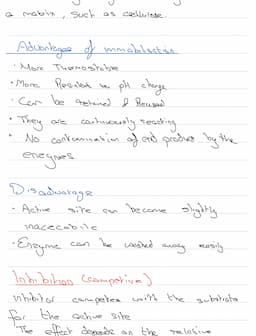 a matrix, such as cellulose.
Advantages of immobilisation
· More Thermostable
· More Resistant to pH change
· Can be retained & Reused
· They are continuously reacting
· No contamination of end product by the
enzymes
Disadvantage
- Active site can become slightly
inaccessible
- Enzyme can be washed away easily
Inhibition (competitive)
Inhibitor competes with the substrate
for the active site
- The effect depends on the relative